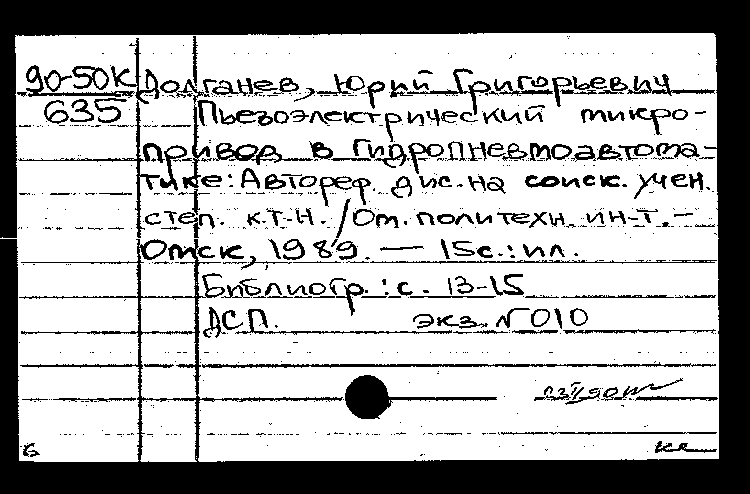 90-50К Долганев, Юрий Григорьевич
635 Пьезоэлектрический микро-
привод в гидропневмоавтома-
тике: Автореф. дис. на соиск. учен.
степ. к.т.н. /Ом. политехн. ин-т. –
Омск, 1989. — 15с.: ил.
Библиогр.: с. 13-15
ДСП. экз. №010